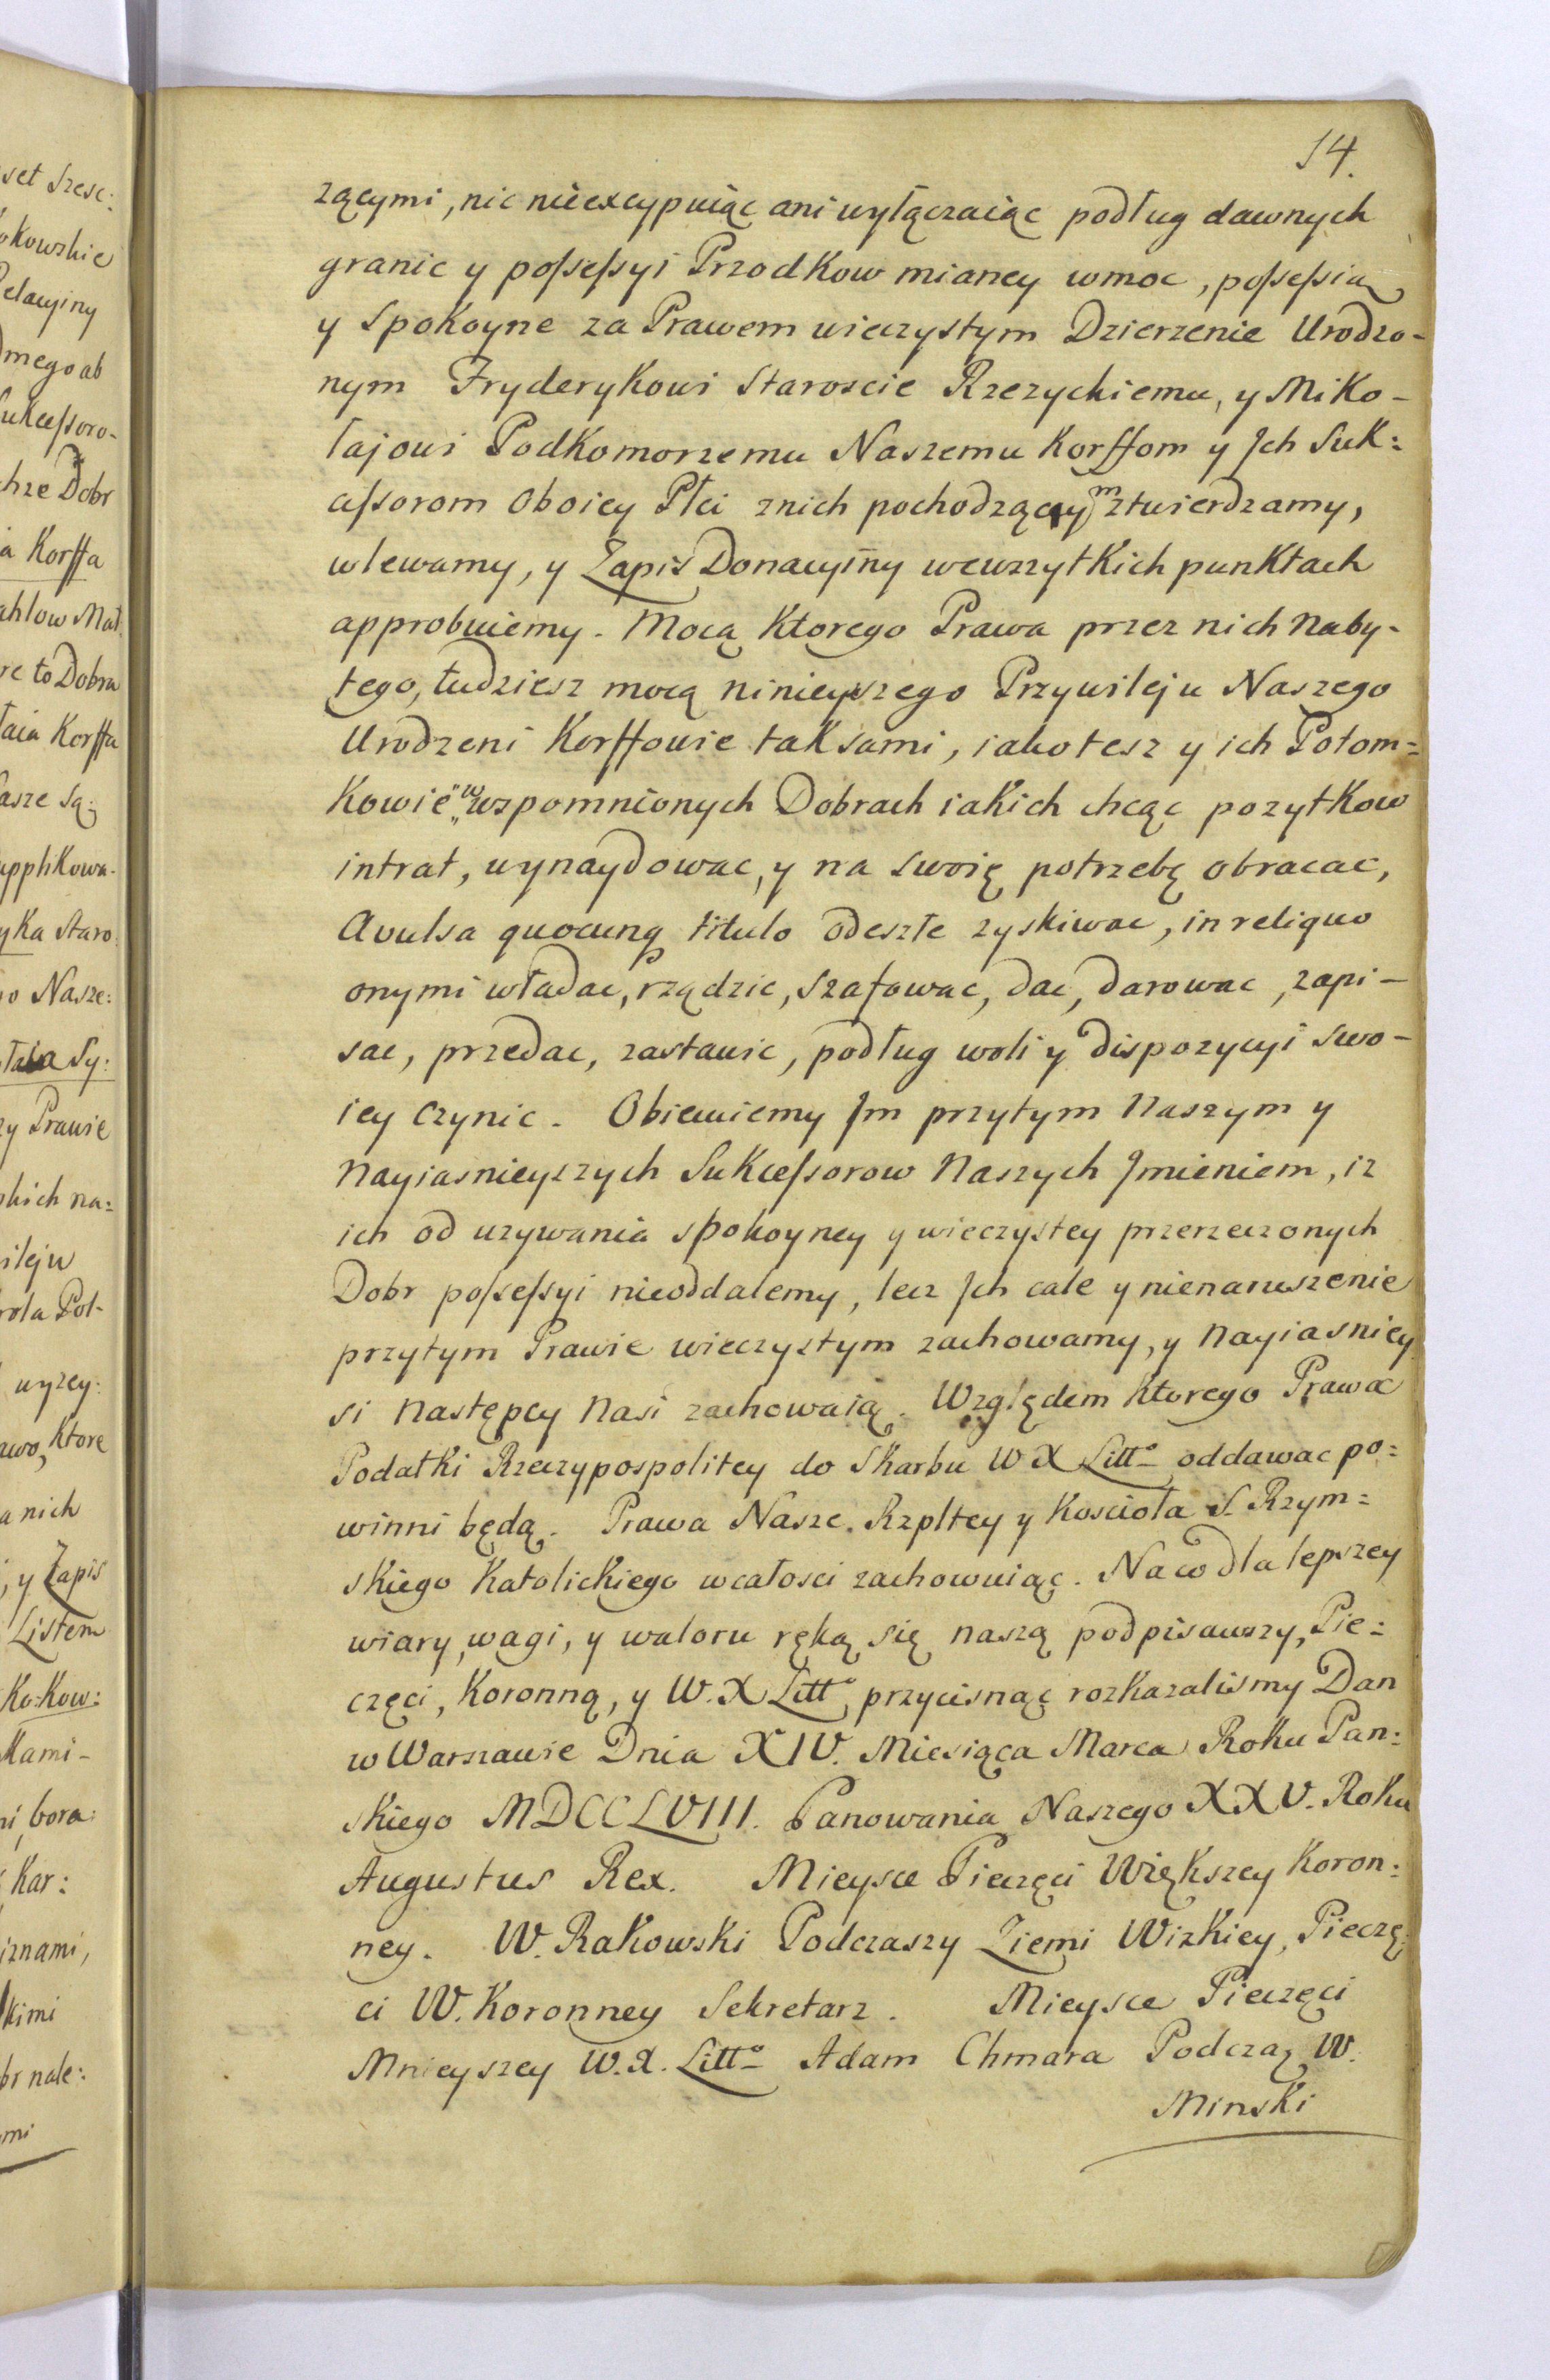 14.
zącymi, nic nieexcypuiąc ani wyłączaiąc podług dawnych
granic y possessyi Przodkow mianey wmoc, possessią
y spokoyne za Prawem wieczystym Dzierzenie Urodzo-
nym Fryderykowi Staroscie Rzezyckiemu, y Miko-
łajowi Podkomorzemu Naszemu Korffom y Ich Suk:
cessorom oboiey Płci znich pochodzącym ztwierdzamy,
wlewamy, y Zapis Donacyiny wewszytkich punktach
approbuiemy. Mocą ktorego Prawa przez nich naby-
tego, tudziesz mocą ninieyszego Przywileju Naszego
Urodzeni Korffowie tak sami, iako tesz y ich Potom=
kowie w wspomnionych Dobrach iakich chcąc pozytkow
intrat, wynaydowac, y na swoię potrzebę obracac,
Avulsa quocunq titulo odeszłe zyskiwac, in reliquo
onymi władac, rządzic, szafowac, dac, darowac, zapi-
sac, przedac, zastawic, podług woli y dispozycyi swo-
iey czynic. Obiecuiemy Im przytym Naszym y
Nayiasnieyszych Sukcessorow Naszych Imieniem, iz
ich od uzywania spokoyney y wieczystey przerzeczonych
Dobr possessyi nieoddalemy, lecz Ich cale y nienaruszenie
przytym Prawie wieczystym zachowamy, y Nayiasniey
si Następcy Nasi zachowaią. Względem ktorego Prawa
Podatki Rzeczypospolitey do Skarbu W X Litto oddawac po=
winni będą. Prawa Nasze. Rzpltey y Koscioła S. Rzym=
skiego Katolickiego wcałosci zachowuiąc. Na co dla lepszey
wiary, wagi, y waloru ręką się naszą podpisawszy, Pie=
częci, Koronną, y W. X Litto przycisnąc rozkazalismy Dan
w Warszawie Dnia XIV. Miesiąca Marca Roku Pan:
skiego MDCCLVIII. Panowania Naszego XXV. Roku
Augustus Rex. Mieysce Pieczęci Większey Koron:
ney. W. Rakowski Podczaszy Ziemi Wizkiey, Pieczę:
ci W. Koronney Sekretarz. Mieysce Pieczęci
Mnieyszey W. X. Litto Adam Chmara Podczaz W.
Minski